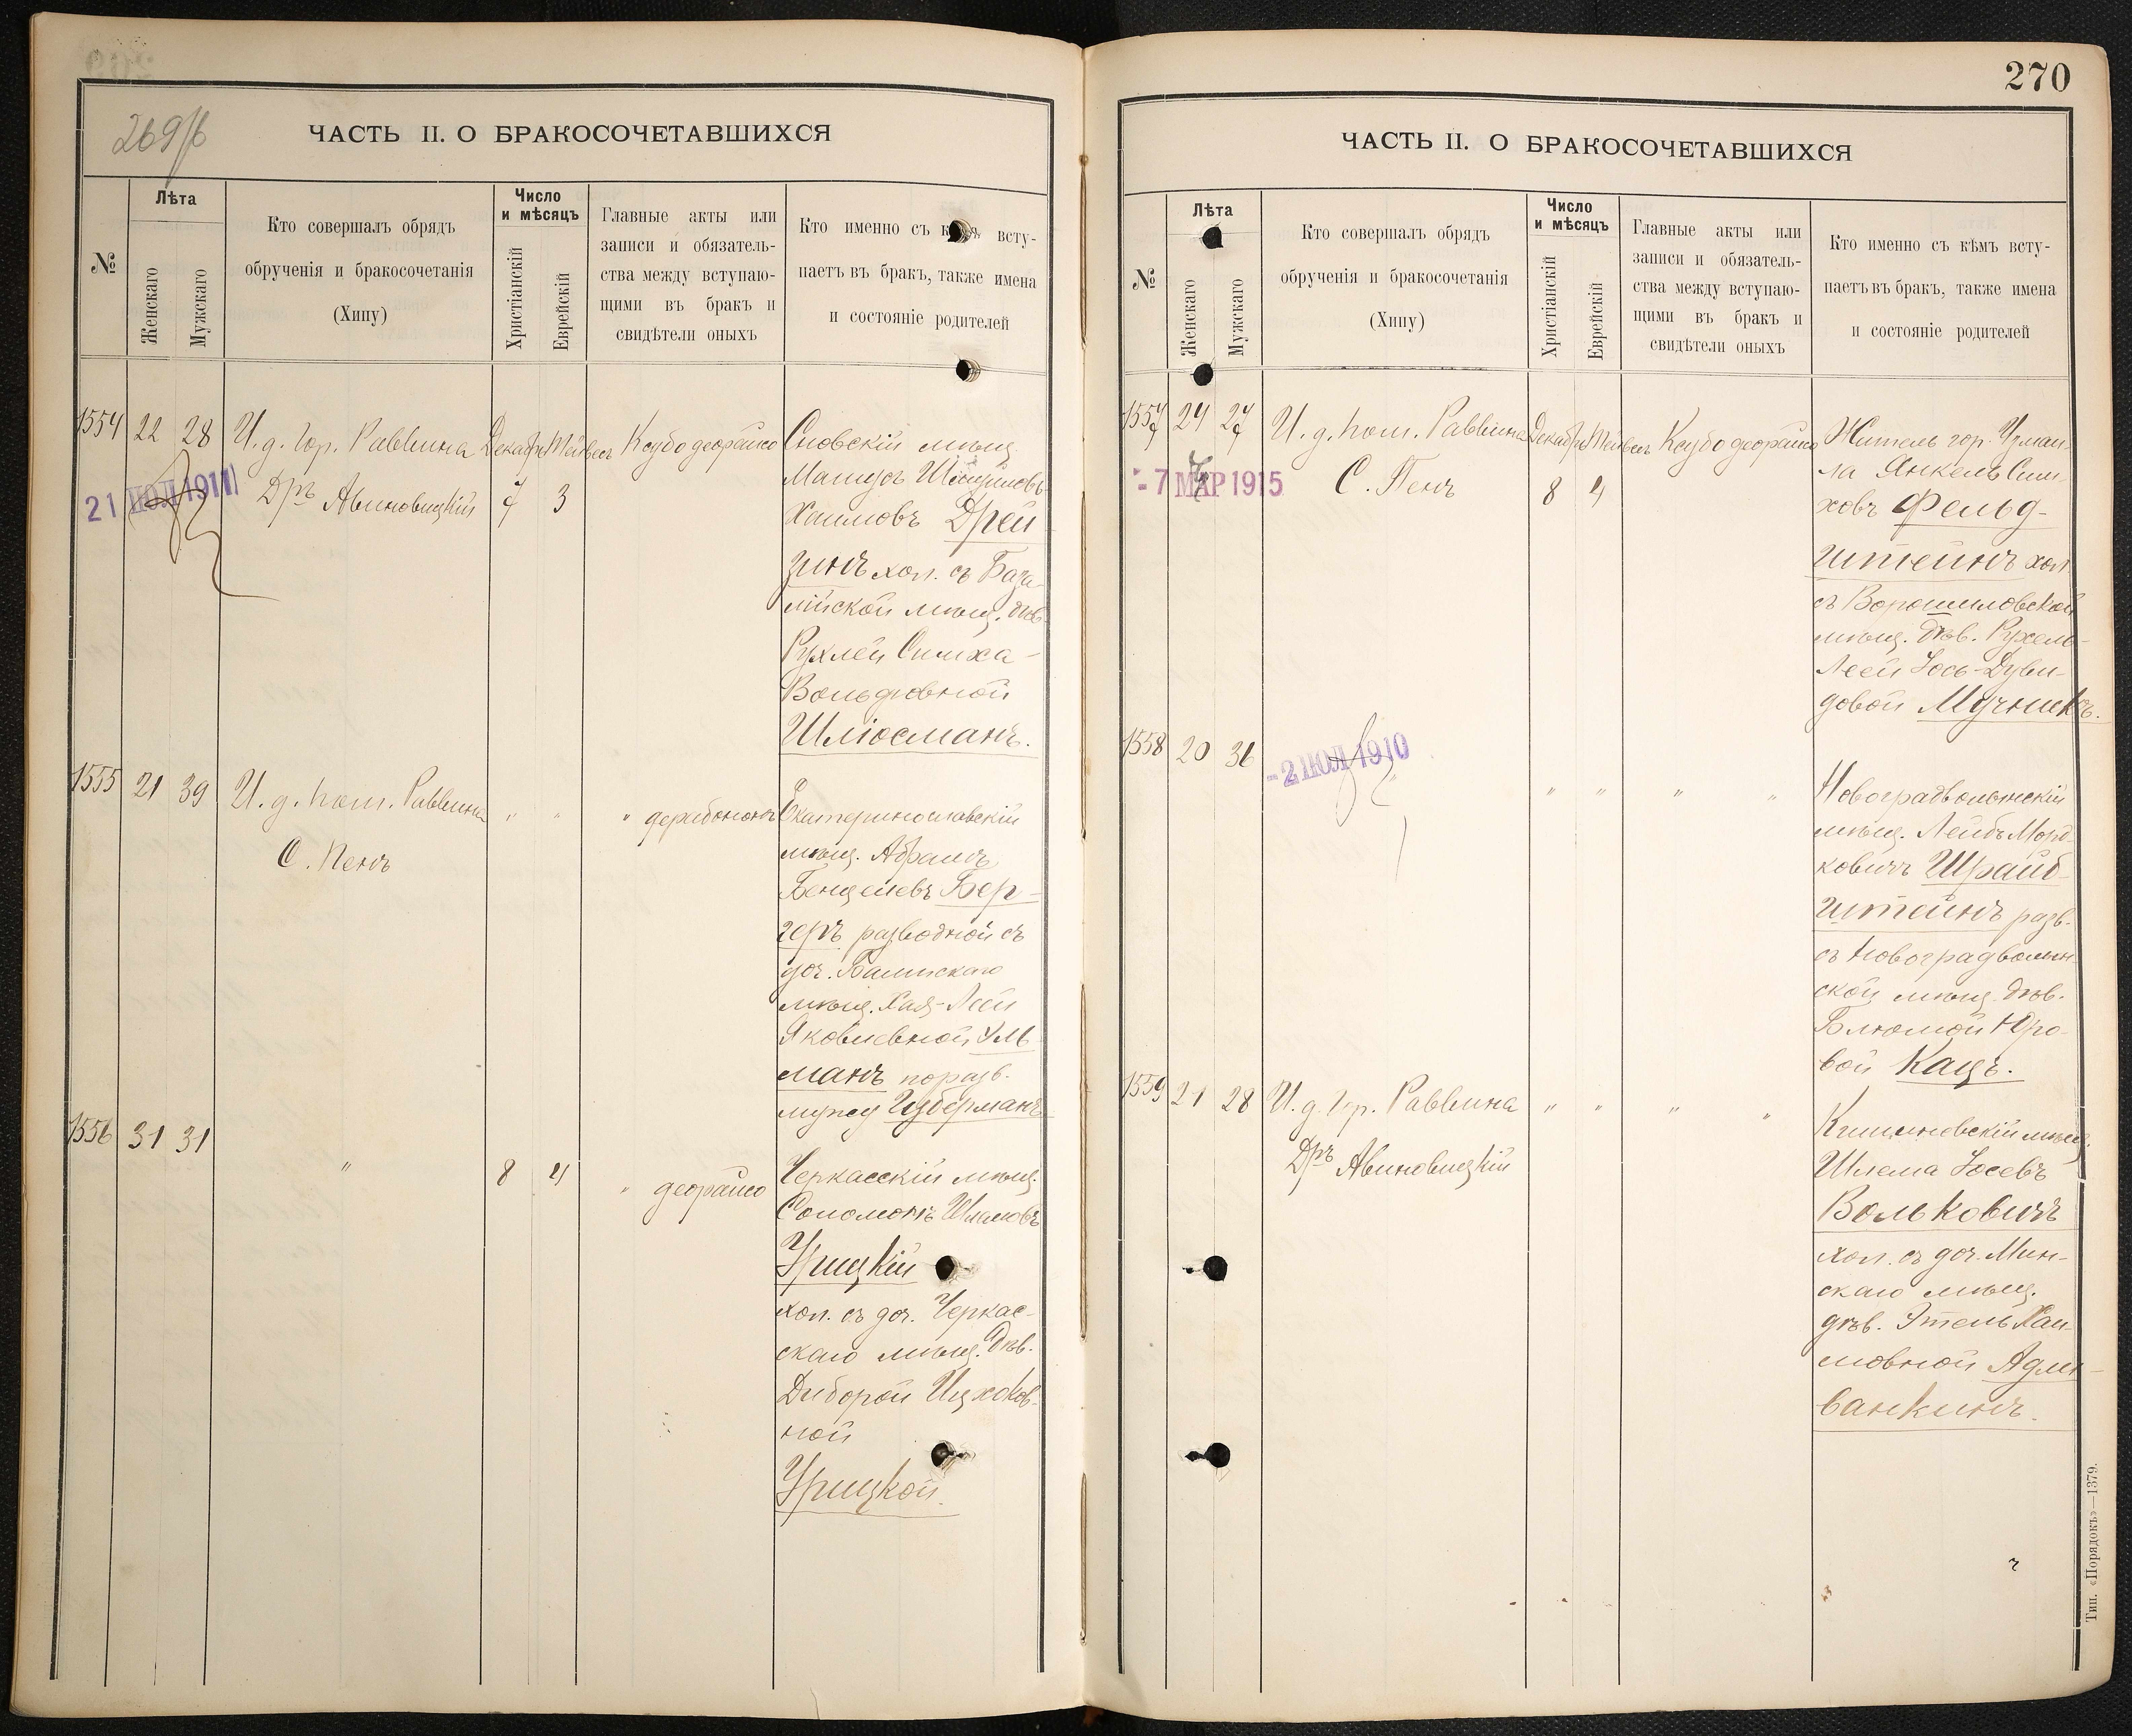 269/б
ЧАСТЬ II. О БРАКОСОЧЕТАВШИХСЯ
№
Лѣта
Женскаго
Мужскаго
Кто совершалъ обрядъ
обрученія и бракосочетанія
(Хипу)
Число
и мѣсяцъ
Христіанскій
Еврейскій
Главные акты или
записи и обязатель-
ства между вступаю-
щими въ бракъ и
свидѣтели оныхъ
Кто именно съ всту-
паетъ въ бракъ, также имена
и состояніе родителей
1554 22 28 И. д. Гор. Раввина Декабр Тейвесъ Ксубо деорайсо
Дръ Авиновицкій 7 3
21 ІЮЛ 1911
Сновскій мѣщ.
Хаимовъ Дрей-
зинъ хол. съ База-
лійской мѣщ. дѣв.
Рухлей Симха-
Вольфовной
Шлюсманъ.
1555 21 39 И. д. пом. Раввина " " " дерабононъ
С. Пенъ
Екатеринославскій
мѣщ. Абрамъ
Бенцелевъ Бер-
геръ разводной съ
доч. Балтскаго
мѣщ. Хая-Леей
Яковлевной Уль-
манъ по разв.
мужу Губерманъ
1556 31 31 " 8 4 " деорайсо
Черкасскій мѣщ.
Соломонъ Шламовъ
Урицкій
хол. съ доч. Черкас-
скаго мѣщ. дѣв.
Диборой Ицхоков-
ной
Урицкой.
270
ЧАСТЬ II. О БРАКОСОЧЕТАВШИХСЯ
№
Лѣта
Женскаго
Мужскаго
Кто совершалъ обрядъ
обрученія и бракосочетанія
(Хипу)
Число
и мѣсяцъ
Христіанскій
Еврейскій
Главные акты или
записи и обязатель-
ства между вступаю-
щими въ бракъ и
свидѣтели оныхъ
Кто именно съ кѣмъ всту-
паетъ въ бракъ, также имена
и состояніе родителей
1557 24 27 И. д. пом. Раввина Декабрь Тейвесъ Ксубо деорайсо
С. Пенъ 8 4
-7 МАР 1915
Житель гор. Измаи-
ла Янкель Сим-
ховъ Фельд-
штейнъ хол.
съ Ворошиловской
мѣщ. дѣв. Рухель-
Леей Іось-Дуви-
довой Мучникъ.
1558 20 36 " " " "
-2 ІЮЛ 1910
Новоградволынскій
мѣщ. Лейбъ Морд-
ковичъ Шрайб-
штейнъ разв.
съ Новоградволын-
ской мѣщ. дѣв.
Блюмой Юро-
вой Кацъ.
1559 21 28 И. д. Гор. Раввина " " " "
Дръ Авиновицкій
Кишиневскій мѣщ.
Шлема Іосевъ
Вольковичъ
хол. съ доч. Мин-
скаго мѣщ.
дѣв. Этель Хаи-
мовной Адми-
ванкинъ.
Тип. «Порядокъ»—1379.